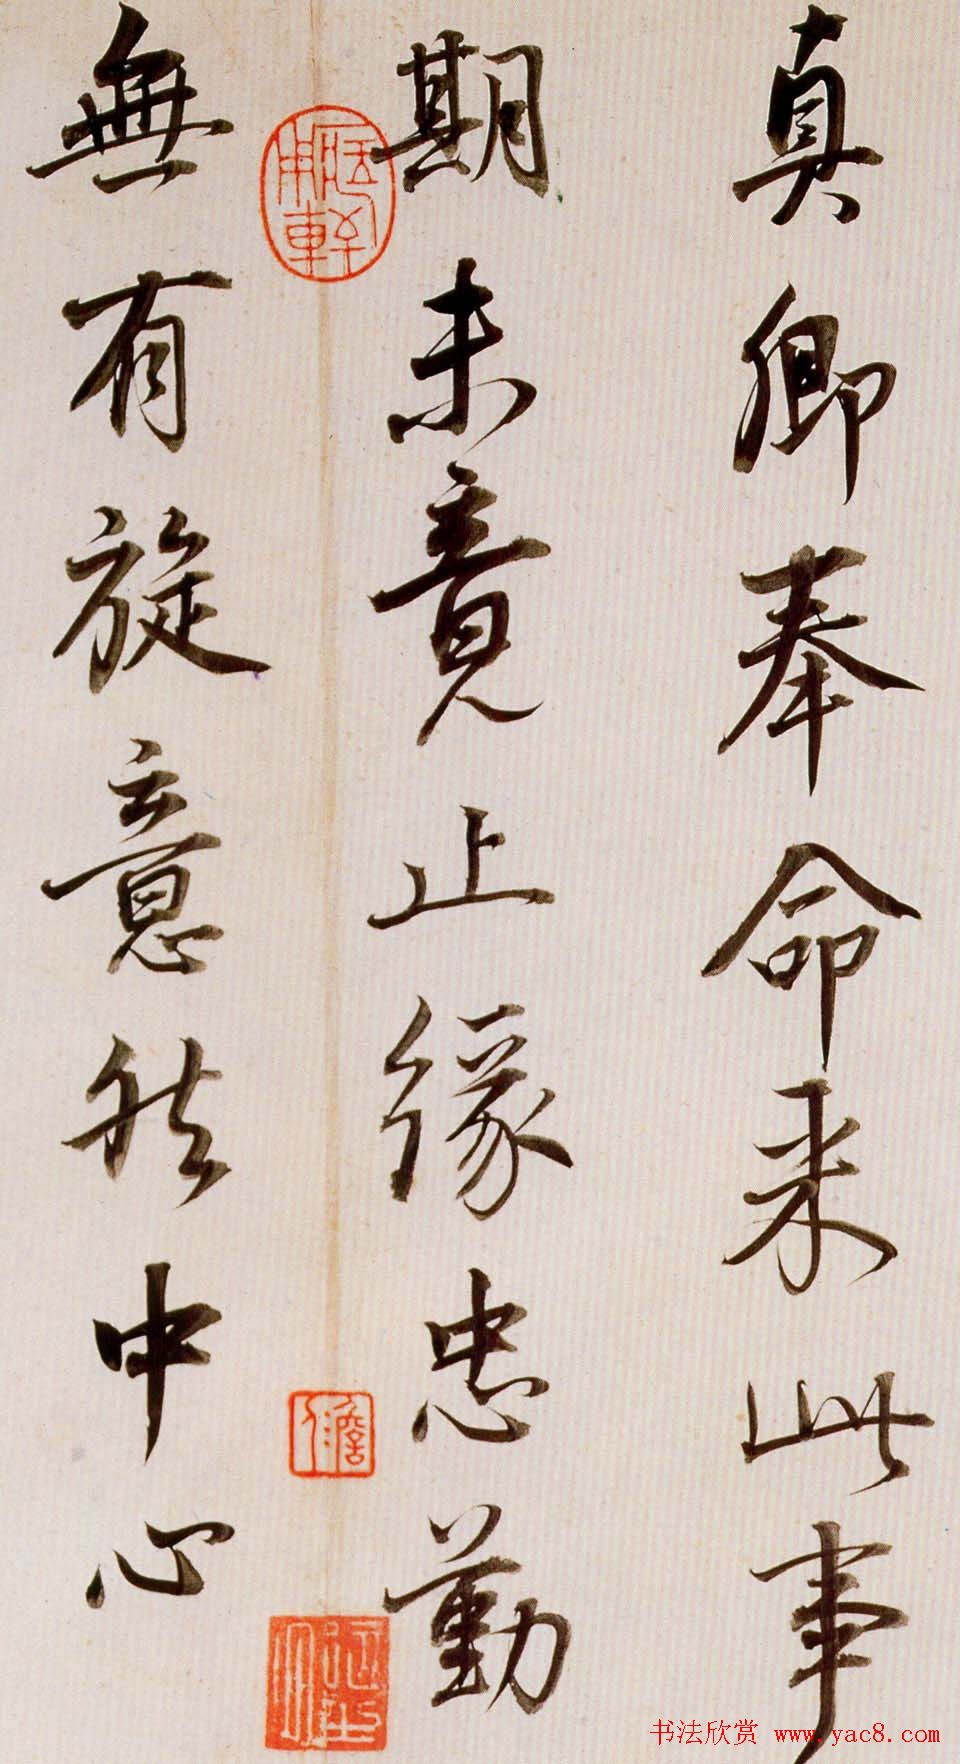 真卿奉命来此事
期未竟止緣忠勤
無有旋意然中心
書法欣赏 www.yac8.com